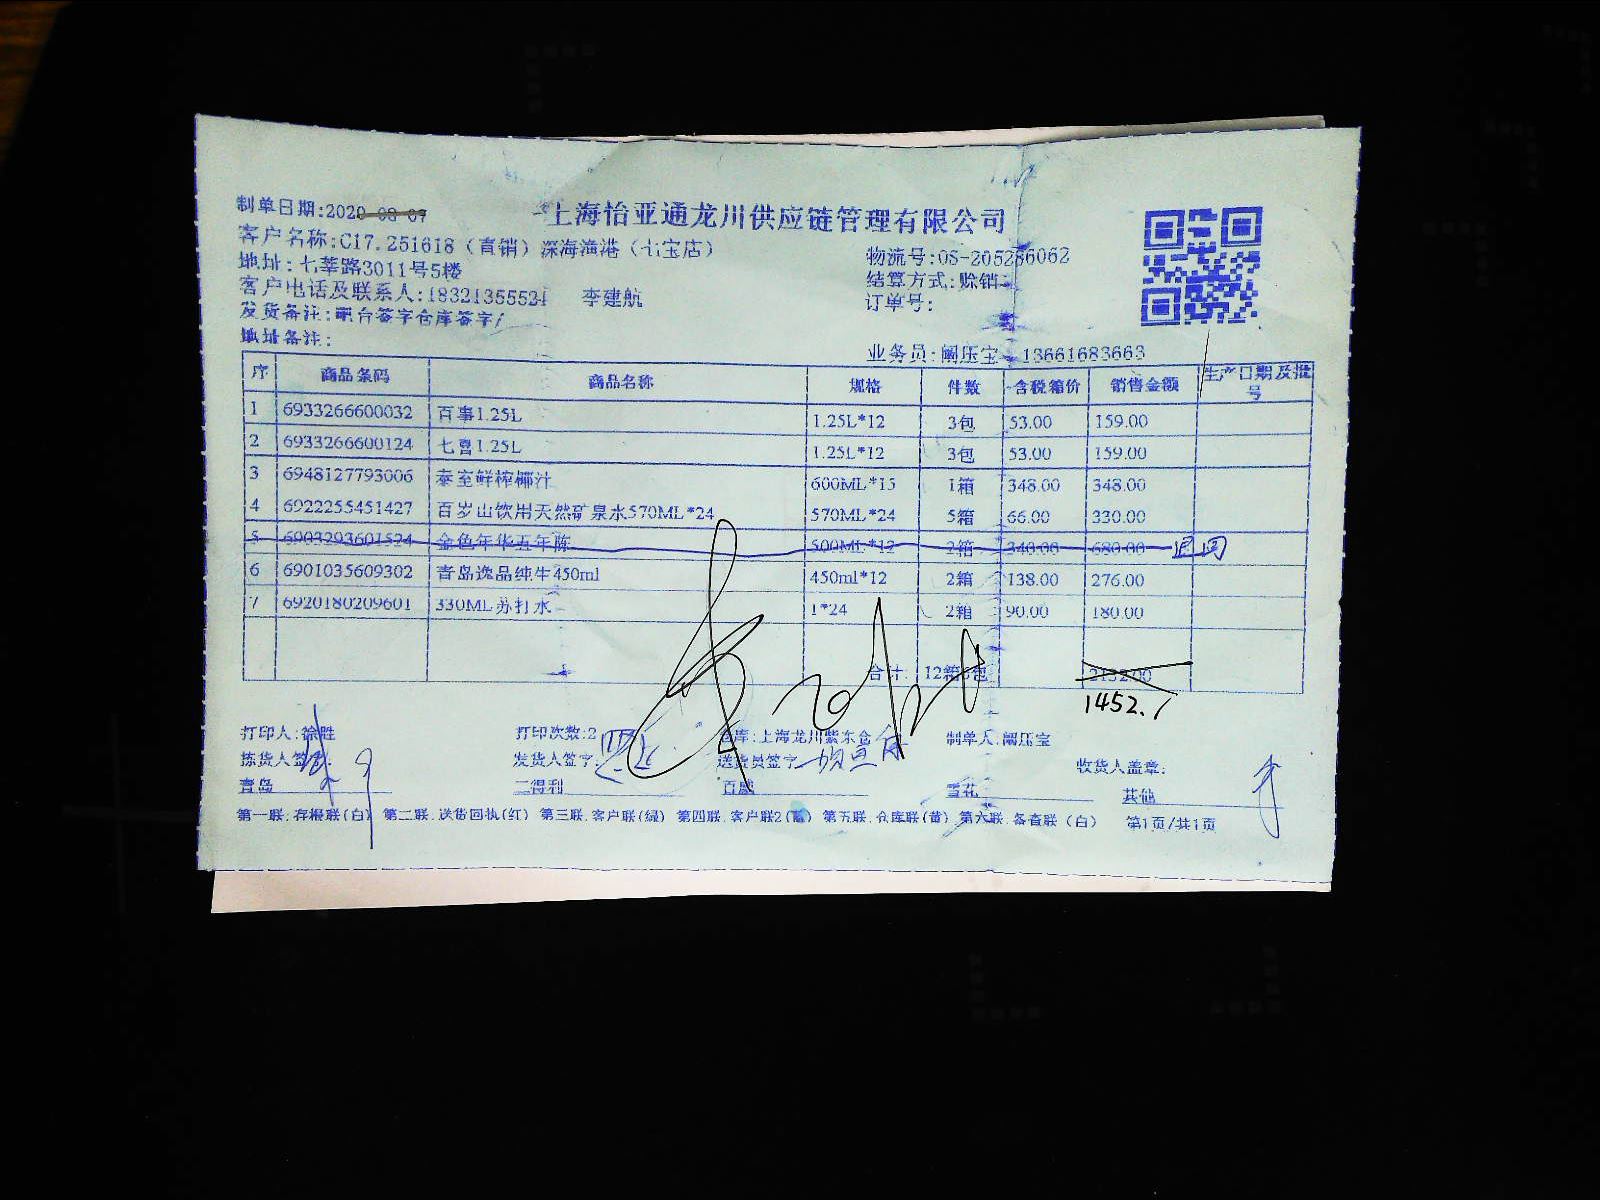 制单日期:2020-03-07
上海怡亚通龙川供应链管理有限公司
客户名称:C17.251618（直销）深海渔港（七宝店）
物流号:OS-205286062
地址:七莘路3011号5楼
结算方式:赊销
客户电话及联系人:18321355521 李建航
订单号:
发货备注:吧台签字仓库签字/
地址备注:
业务员:阚压宝 13661683663
序 商品条码 商品名称 规格 件数 含税箱价 销售金额 生产日期及批号
1 6933266600032 百事1.25L 1.25L*12 3包 53.00 159.00
2 6933266600124 七喜1.25L 1.25L*12 3包 53.00 159.00
3 6948127793006 泰至鲜榨椰汁 600ML*15 1箱 348.00 348.00
4 6922255451427 百岁山饮用天然矿泉水570ML*24 570ML*24 5箱 66.00 330.00
5 6903293601524 金色年华五年陈 500ML*12 2箱 340.00 680.00 退回
6 6901035609302 青岛逸品纯生450ml 450ml*12 2箱 138.00 276.00
7 6920180209601 330ML苏打水 1*24 2箱 90.00 180.00
合计: 12箱6包 2132.00
1452.
打印人:徐胜 打印次数:2 仓库:上海龙川紫东仓 制单人:阚压宝
拣货人签字: 发货人签字: 送货员签字 收货人盖章:
青岛 三得利 百威 雪花 其他
第一联:存根联(白) 第二联:送货回执(红) 第三联:客户联(绿) 第四联:客户联2(蓝) 第五联:仓库联(黄) 第六联:备查联(白) 第1页/共1页